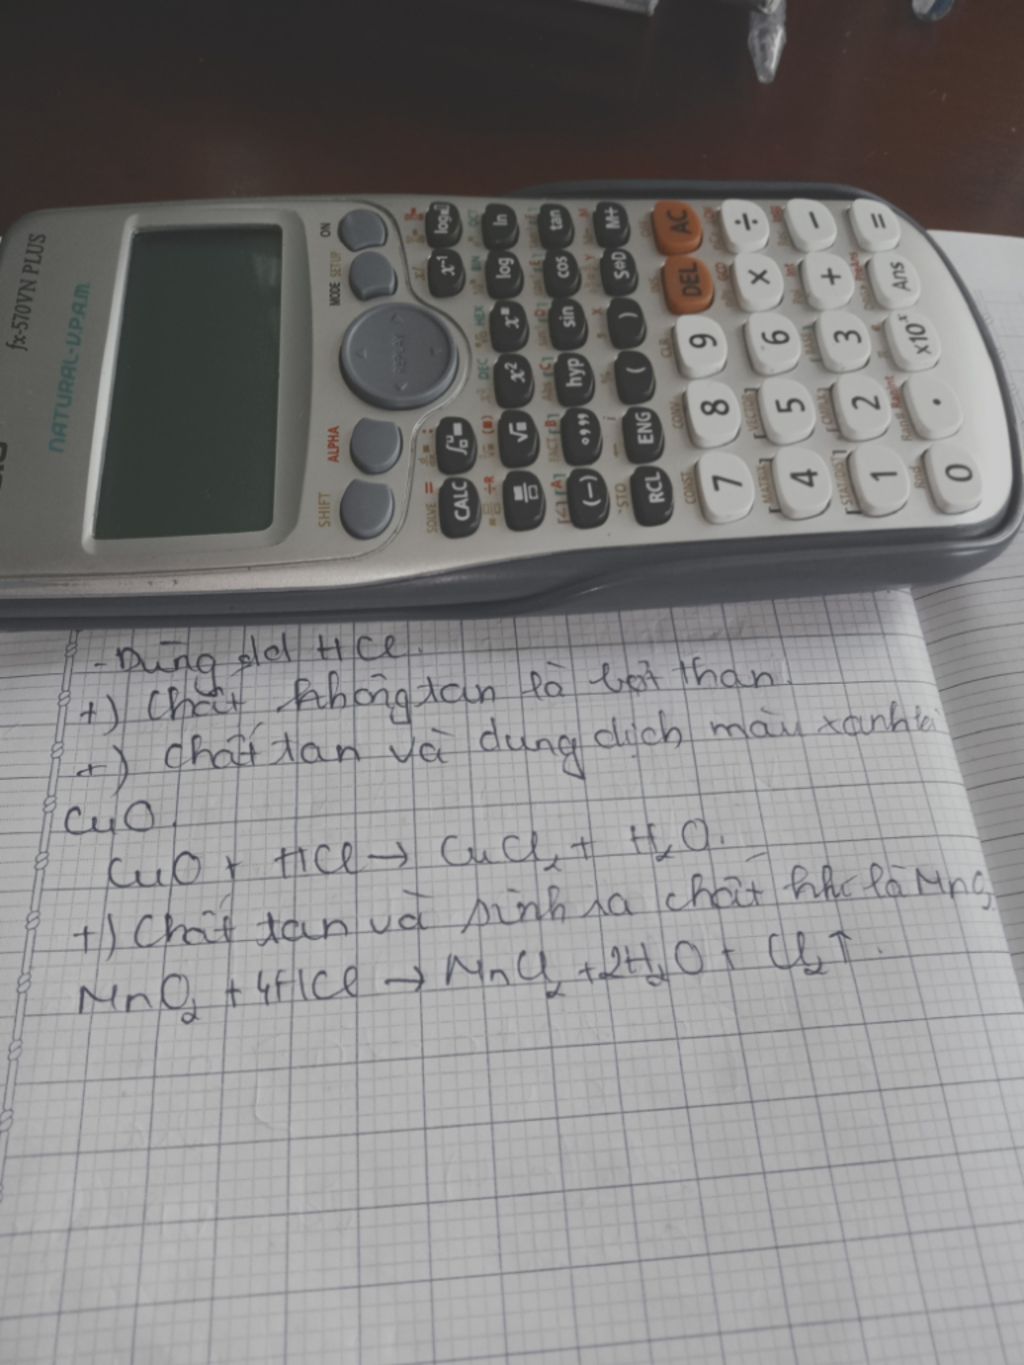 fx-570VN PLUS
NATURAL-V.P.A.M.
SHIFT ALPHA MODE SETUP ON
REPLAY
CALC ∫ x⁻¹ log
√ x² xⁿ log ln
(−) °,,, hyp sin cos tan
RCL ENG ( ) S⇔D M+
7 8 9 DEL AC
4 5 6 × ÷
1 2 3 + −
0 . ×10ˣ Ans =
- Dùng dd HCl.
+) Chất không tan là bột than.
+) Chất tan và dung dịch màu xanh là
CuO.
CuO + HCl → CuCl₂ + H₂O.
+) Chất tan và sinh ra chất khí là MnO₂
MnO₂ + 4HCl → MnCl₂ + 2H₂O + Cl₂↑.